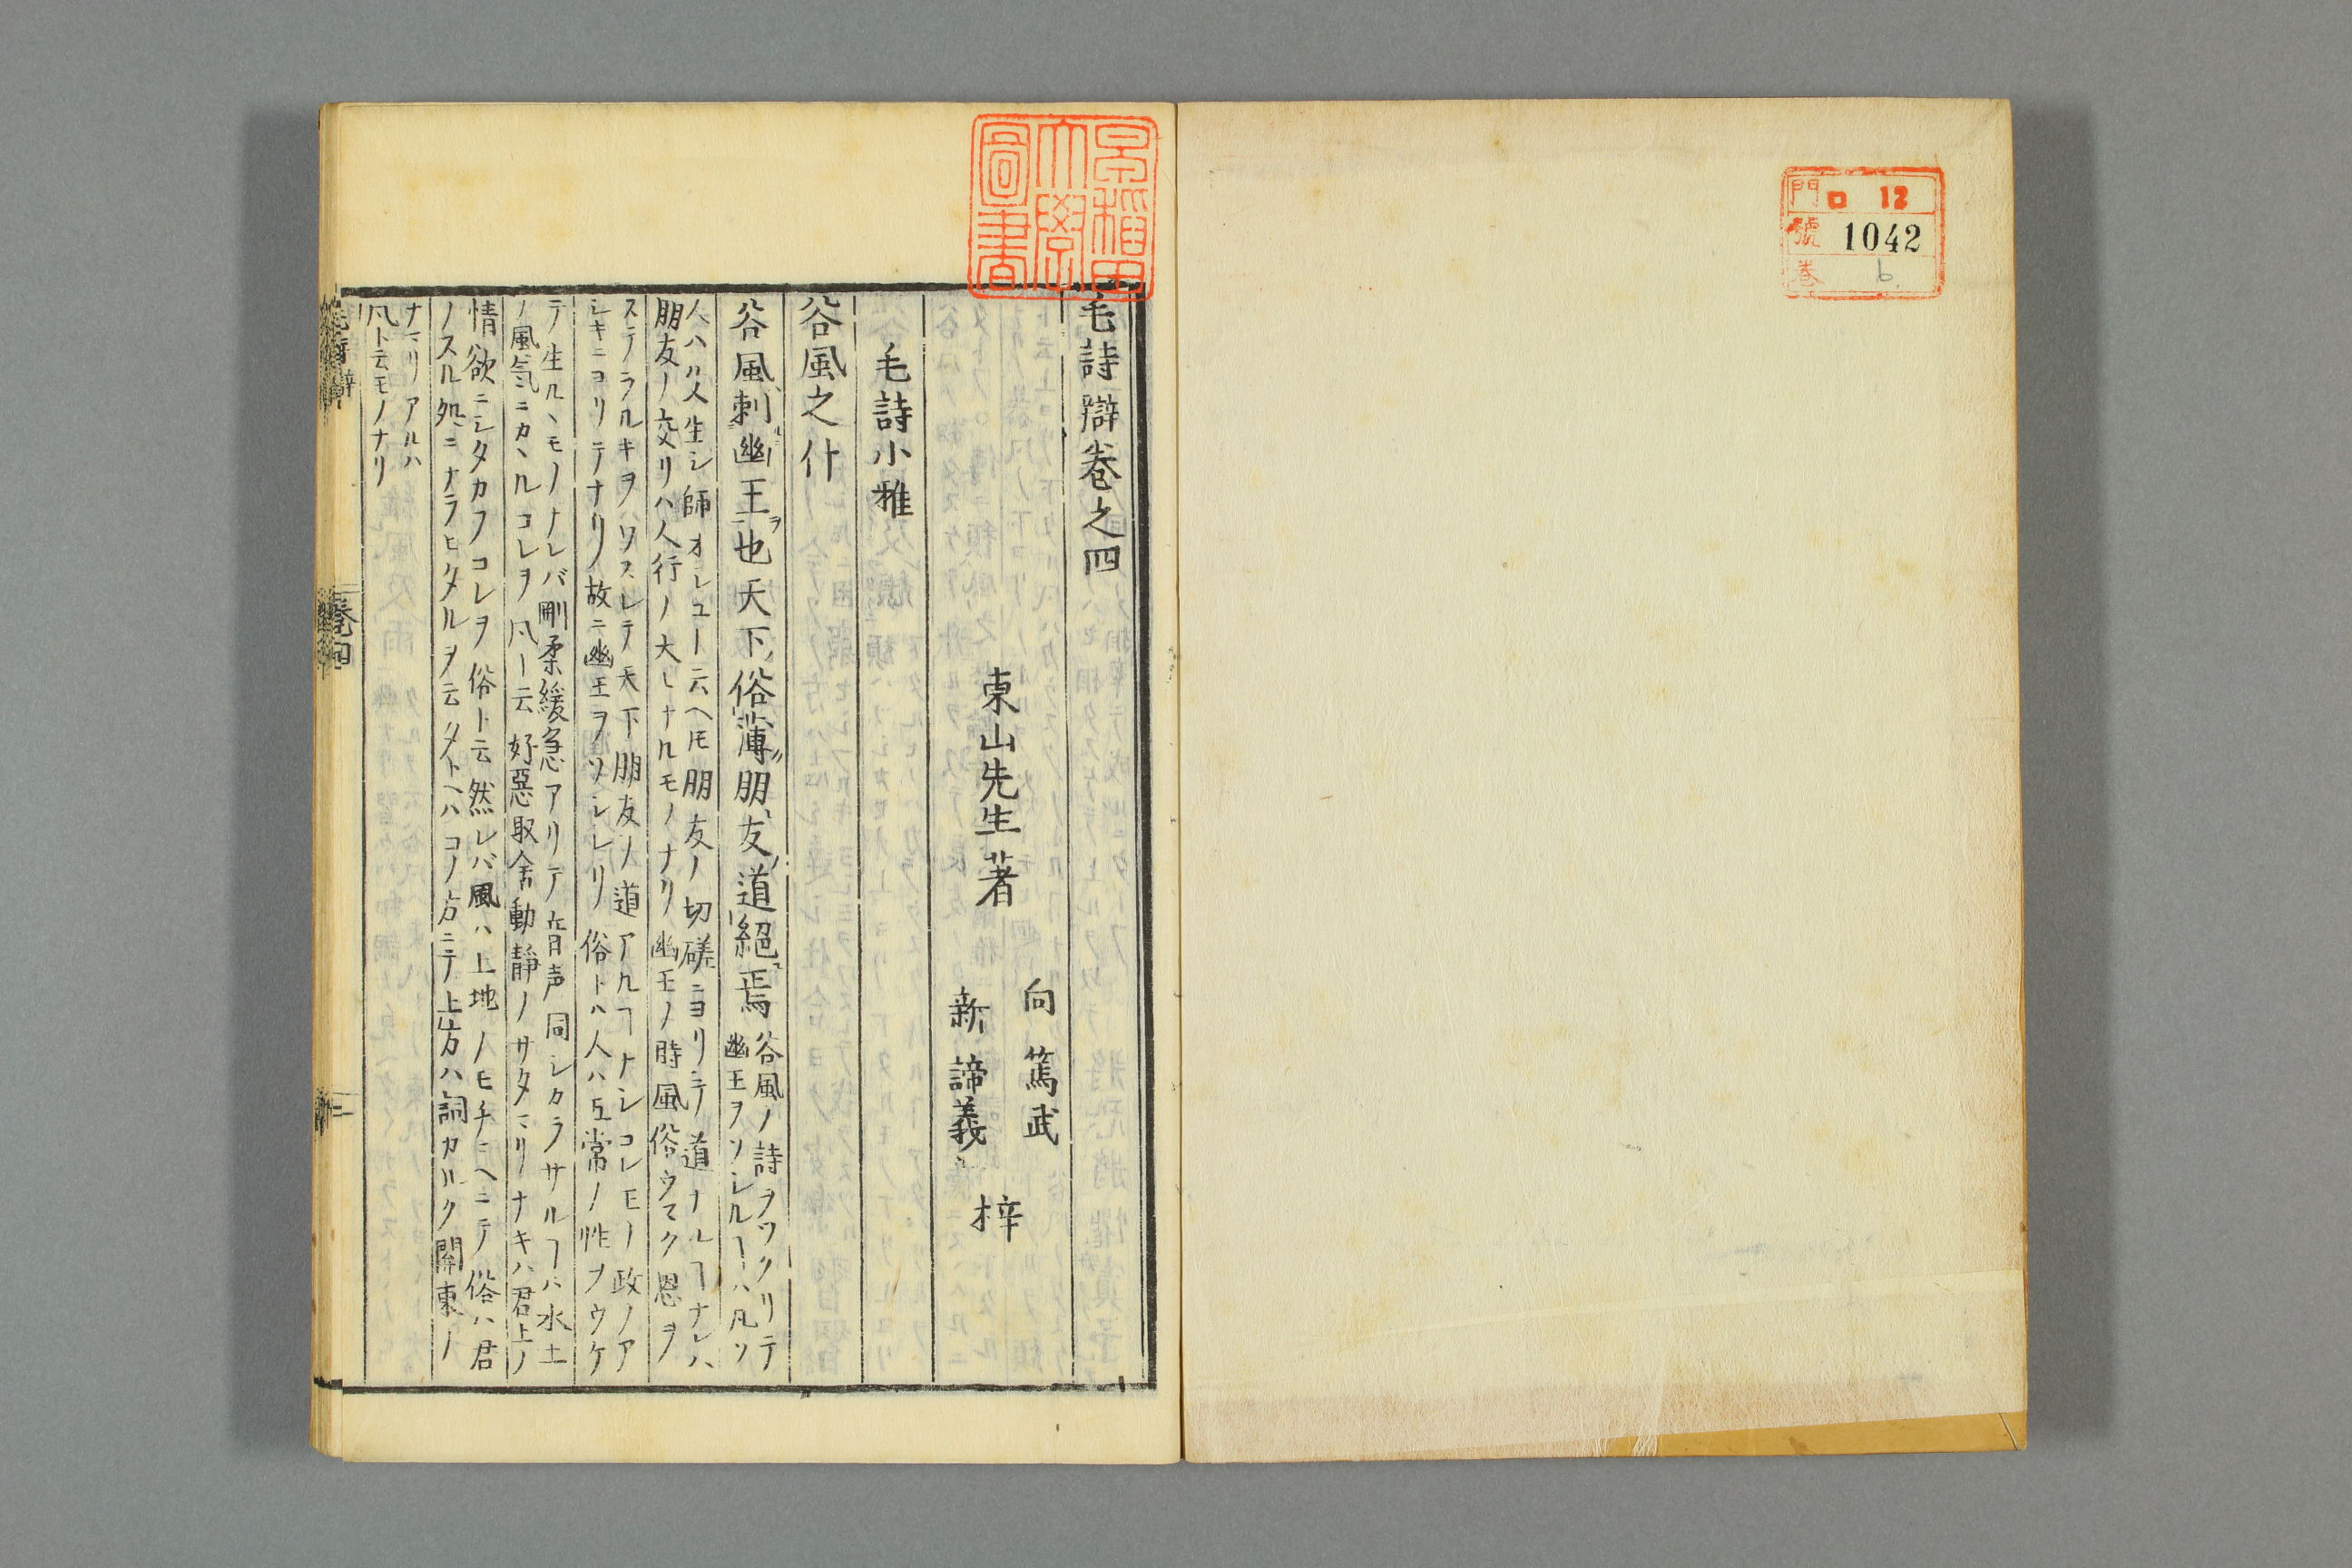 門 ロ 12
號 1042
巻 6
早稲田
大學
圖書
毛詩辯巻之四
向 篤武
東山先生著
梓
新 諦義
毛詩小雅
谷風之什
谷風刺幽王也天下俗薄朋友道絕焉
谷風ノ詩ヲツクリテ
幽王ヲソシルヿハ凡ソ
人ハ父生シ師オシユト云ヘ𪜈朋友ノ切磋ニヨリテ道ナルヿナレハ
朋友ノ交リハ人行ノ大ヒナルモノナリ幽王ノ時風俗ウスク恩ヲ
ステフルキヲワスレテ天下朋友ノ道アルヿナシコレモノ政ノア
シキニヨリテナリ故ニ幽王ヲソシレリ俗トハ人ハ五常ノ性ヲウケ
テ生ルヽモノナレバ剛柔緩急アリテ音声同シカラサルヿハ水土
ノ風氣ニカヽルコレヲ風ト云好惡取舍動靜ノサタマリナキハ君上ノ
情欲ニシタカフコレヲ俗ト云然レバ風ハ土地ノモチマヘニテ俗ハ君
ノスル処ニナラヒタルヲ云タトヘハコノ方ニテ上方ハ詞カルク關東ノ
ナマリアルハ
凡ト云モノナリ
毛詩辯
巻四
一